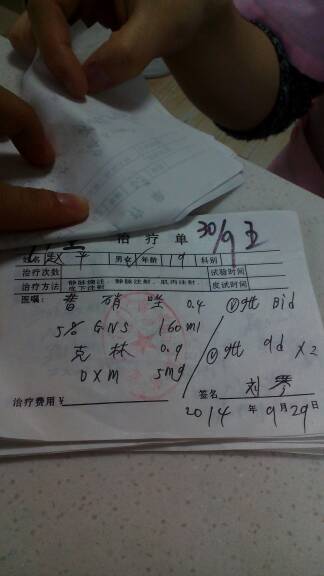 治疗单 30/9 王
姓名 赵平 男女 年龄 19 科别
治疗次数 试验时间
治疗方法 静脉推注、静脉注射、肌肉注射、皮下注射 皮试时间
医嘱: 昔硝唑 0.4 ⓥ gtt Bid
5% GNS 160ml
克林 0.9 ⓥ gtt qd X2
DXM 5mg
治疗费用¥ 签名 刘琴
2014年9月29日